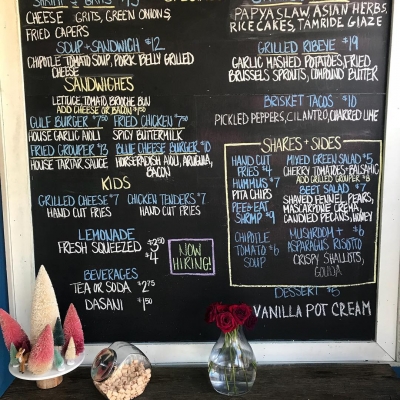 CHEESE GRITS, GREEN ONIONS
FRIED CAPERS
SOUP + SANDWICH $12
CHIPOTLE TOMATO SOUP, PORK BELLY GRILLED
CHEESE
SANDWICHES
LETTUCE, TOMATO, BRIOCHE BUN
ADD CHEESE OR BACON
GULF BURGER FRIED CHICKEN
HOUSE GARLIC AIOLI SPICY BUTTERMILK
FRIED GROUPER BLUE CHEESE BURGER $10
HOUSE TARTAR SAUCE HORSERADISH AIOLI, ARUGULA,
BACON
KIDS
GRILLED CHEESE $7 CHICKEN TENDERS $7
HAND CUT FRIES HAND CUT FRIES
LEMONADE
FRESH SQUEEZED $3.50
$4
NOW
HIRING!
BEVERAGES
TEA OR SODA $2.75
DASANI $1.50
PAPYA SLAW, ASIAN HERBS,
RICE CAKES, TAMRIDE GLAZE
GRILLED RIBEYE $19
GARLIC MASHED POTATOES, FRIED
BRUSSELS SPROUTS, COMPOUND BUTTER
BRISKET TACOS $10
PICKELED PEPPERS, CILANTRO, CHARRED LIME
SHARES + SIDES
HAND CUT
FRIES $4
HUMMUS $7
PITA CHIPS
PEEL & EAT
SHRIMP $9
CHIPOTLE
TOMATO $6
SOUP
MIXED GREEN SALAD $5
CHERRY TOMATOES + BALSAMIC
ADD GRILLED GROUPER $8
BEET SALAD $7
SHAVED FENNEL, PEARS,
MASCARPONE CREMA,
CANDIED PECANS, HONEY
MUSHROOM + $6
ASPARAGUS RISOTTO
CRISPY SHALLOTS,
GOUDA
DESSERT $5
VANILLA POT CREAM